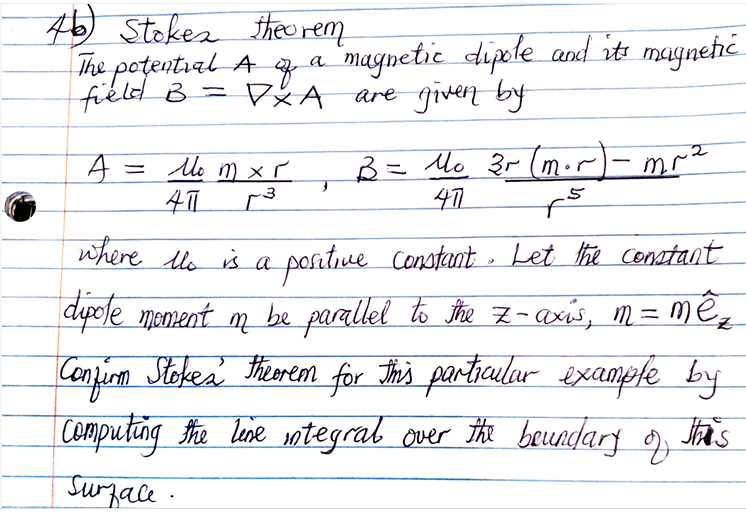 4b) Stokes theorem
The potential A of a magnetic dipole and its magnetic
field B = ∇×A are given by
A = μ₀/4π m×r/r³, B = μ₀/4π (3r(m·r) - mr²)/r⁵
where μ₀ is a positive constant. Let the constant
dipole moment m be parallel to the z-axis, m = mê_z
Confirm Stokes' theorem for this particular example by
computing the line integral over the boundary of this
surface.